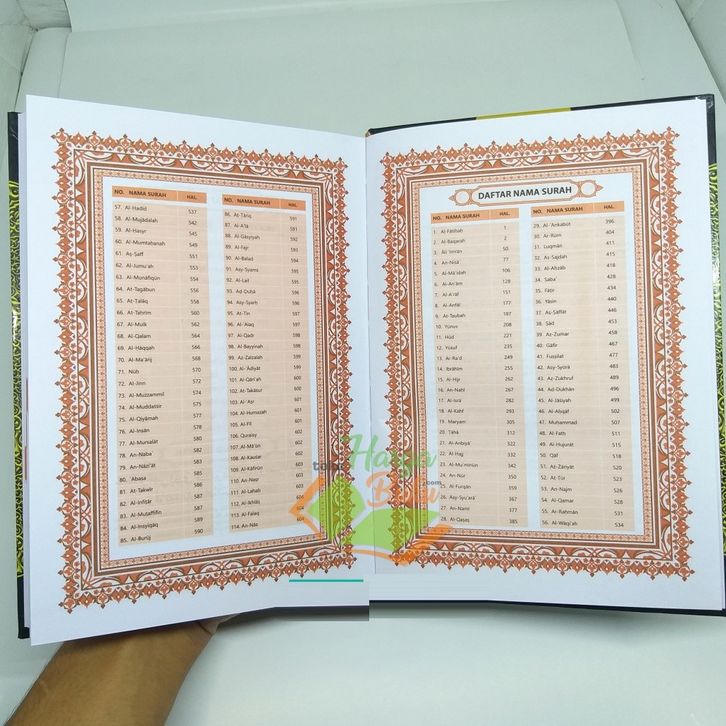 NO. NAMA SURAH HAL.
57. Al-Hadid 537
58. Al-Mujādalah 542
59. Al-Hasyr 545
60. Al-Mumtahanah 549
61. Aṣ-Ṣaff 551
62. Al-Jumu'ah 553
63. Al-Munāfiqūn
64. At-Tagābun 556
65. At-Talāq 558
66. At-Tahrīm 560
67. Al-Mulk 562
68. Al-Qalam 564
69. Al-Hāqqah 566
70. Al-Ma'ārij 568
71. Nūh 570
72. Al-Jinn 572
73. Al-Muzzammil 574
74. Al-Muddaṡṡir 575
75. Al-Qiyāmah 577
76. Al-Insān 578
77. Al-Mursalāt 580
78. An-Naba 582
79. An-Nāzi'āt 583
80. 'Abasa 585
81. At-Takwīr 586
82. Al-Infiṭār 587
83. Al-Muṭaffifīn 587
84. Al-Insyiqāq 589
85. Al-Burūj 590
NO. NAMA SURAH HAL.
86. At-Tāriq 591
87. Al-A'lā 591
88. Al-Gāsyiyah 592
89. Al-Fajr 593
90. Al-Balad 594
91. Asy-Syams 595
92. Al-Lail 595
93. Ad-Duhā 596
94. Asy-Syarh 596
95. At-Tīn 597
96. Al-'Alaq 597
97. Al-Qadr 598
98. Al-Bayyinah 598
99. Az-Zalzalah 599
100. Al-'Ādiyāt 599
101. Al-Qāri'ah 600
102. At-Takāṡur 600
103. Al-'Aṣr 601
104. Al-Humazah 601
105. Al-Fīl 601
106. Quraisy 602
107. Al-Mā'ūn 602
108. Al-Kauṡar 602
109. Al-Kāfirūn 603
110. An-Naṣr 603
111. Al-Lahab 603
112. Al-Ikhlāṣ 604
113. Al-Falaq 604
114. An-Nās 604
DAFTAR NAMA SURAH
NO. NAMA SURAH HAL.
1. Al-Fātihah 1
2. Al-Baqarah 2
3. Āli 'Imrān 50
4. An-Nisā' 77
5. Al-Mā'idah 106
6. Al-An'ām 128
7. Al-A'rāf 151
8. Al-Anfāl 177
9. At-Taubah 187
10. Yūnus 208
11. Hūd 221
12. Yūsuf 235
13. Ar-Ra'd 249
14. Ibrāhīm 255
15. Al-Hijr 262
16. An-Nahl 267
17. Al-Isrā 282
18. Al-Kahf 293
19. Maryam 305
20. Tāhā 312
21. Al-Anbiyā' 322
22. Al-Hajj 332
23. Al-Mu'minūn 342
24. An-Nūr 350
25. Al-Furqān 359
26. Asy-Syu'arā' 367
27. An-Naml 377
28. Al-Qaṣaṣ 385
NO. NAMA SURAH HAL.
29. Al-'Ankabūt 396
30. Ar-Rūm 404
31. Luqmān 411
32. As-Sajdah 415
33. Al-Ahzāb 418
34. Saba' 428
35. Fāṭir 434
36. Yāsīn 440
37. As-Ṣāffāt 446
38. Ṣād 453
39. Az-Zumar 458
40. Gāfir 467
41. Fuṣṣilat 477
42. Asy-Syūrā 483
43. Az-Zukhruf 489
44. Ad-Dukhān 496
45. Al-Jāṡiyah 499
46. Al-Ahqāf 502
47. Muhammad 507
48. Al-Fath 511
49. Al-Hujurāt 515
50. Qāf 518
51. Az-Zāriyāt 520
52. Aṭ-Ṭūr 523
53. An-Najm 526
54. Al-Qamar 528
55. Ar-Rahmān 531
56. Al-Wāqi'ah 534
toko
Harga
Buku
.com